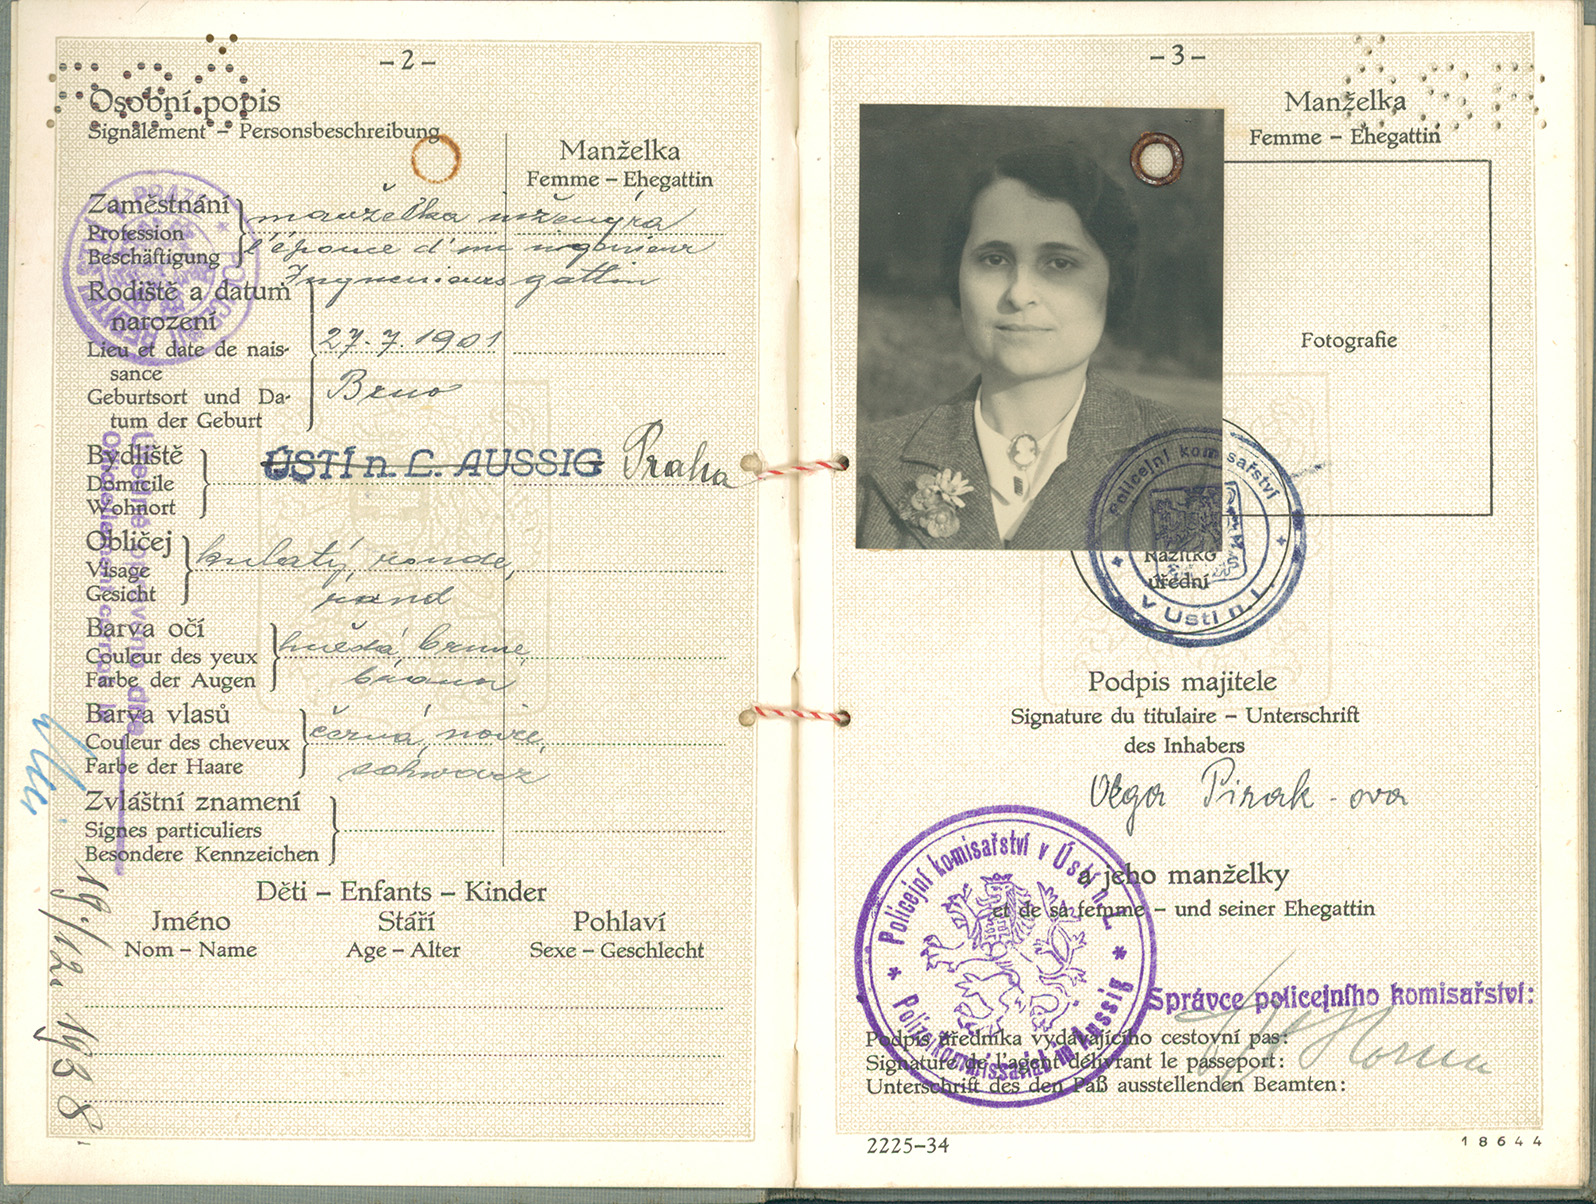 -2-
Osobní popis
Signalement - Personsbeschreibung
Manželka
Femme - Ehegattin
Zaměstnání
Profession
Beschäftigung
manželka inženýra
l'épouse d'un ingenieur
Ingenieurs gattin
Rodiště a datum
narození
Lieu et date de nais-
sance
Geburtsort und Da-
tum der Geburt
27.7.1901
Brno
Bydliště
Domicile
Wohnort
ÚSTÍ n. L. AUSSIG Praha
Obličej
Visage
Gesicht
kulatý, ronde,
rund
Barva očí
Couleur des yeux
Farbe der Augen
hnědá, brune,
braun
Barva vlasů
Couleur des cheveux
Farbe der Haare
černá, noire,
schwarz
Zvláštní znamení
Signes particuliers
Besondere Kennzeichen
Děti - Enfants - Kinder
Jméno
Nom - Name
Stáří
Age - Alter
Pohlaví
Sexe - Geschlecht
19./12. 1938
-3-
Manželka
Femme - Ehegattin
Fotografie
Policejní komisařství
v Ústí n. L.
Razítko
úřední
Podpis majitele
Signature du titulaire - Unterschrift
des Inhabers
Olga Pirak-ova
a jeho manželky
et de sa femme - und seiner Ehegattin
Policejní komisařství v Ústí n. L.
Polizeikommissariat in Aussig
Správce policejního komisařství:
Podpis úředníka vydávajícího cestovní pas:
Signature de l'agent délivrant le passeport:
Unterschrift des den Paß ausstellenden Beamten:
2225-34
18644